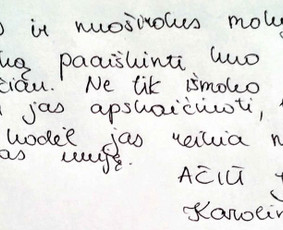 ir nuoširdus moky
paaiškinti kuo
Ne tik išmoko
jas apskaičiuoti,
kodėl jas reikia
AČIŪ
Karolin